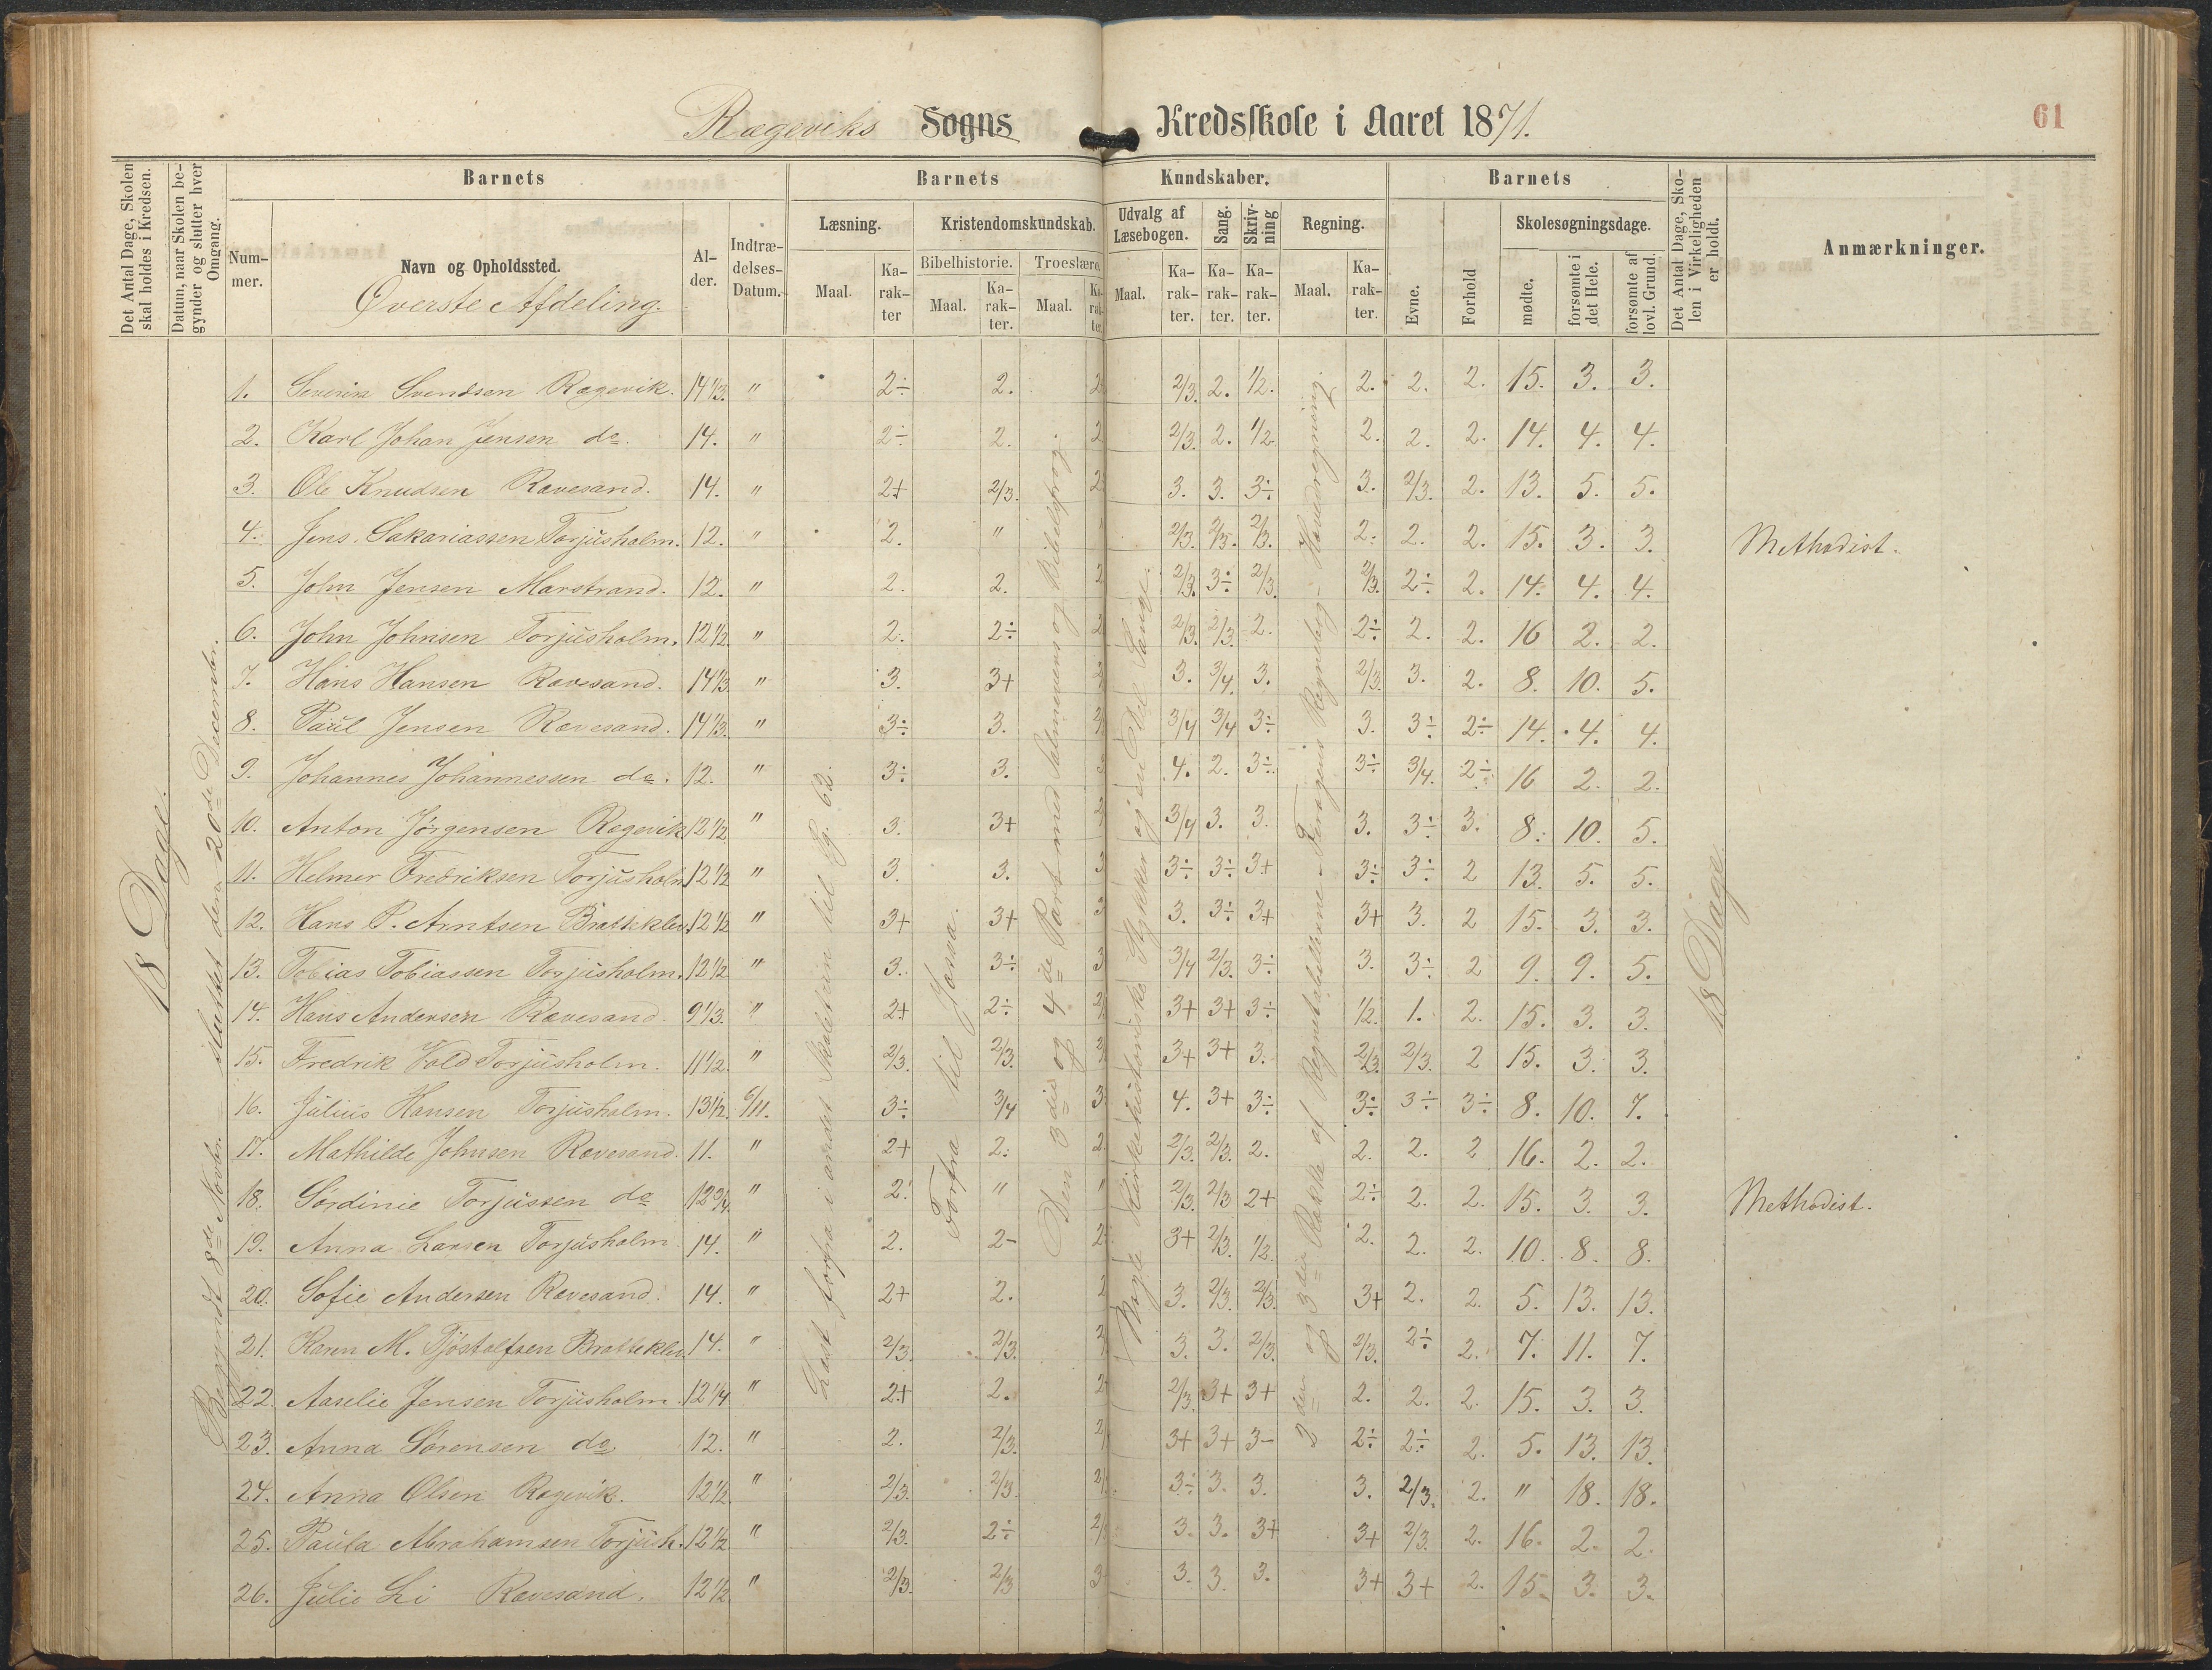 Rægeviks Sogns Kredsskole i Aaret 1871.
61
Det Antal Dage, Skolen skal holdes i Kredsen.
Datum, naar Skolen begynder og slutter hver Omgang.
Barnets
Nummer.
Navn og Opholdssted.
Øverste Afdeling.
Alder.
Indtrædelses-Datum.
Barnets Kundskaber.
Læsning.
Maal.
Karakter
Kristendomskundskab.
Bibelhistorie.
Maal.
Karakter.
Troeslære.
Maal.
Karakter.
Udvalg af Læsebogen.
Maal.
Karakter.
Sang.
Karakter.
Skrivning
Karakter.
Regning.
Maal.
Karakter.
Barnets
Evne.
Forhold
Skolesøgningsdage.
mødte.
forsømte i det Hele.
forsømte af lovl. Grund.
Det Antal Dage, Skolen i Virkeligheden er holdt.
Anmærkninger.
18 Dage.
Begyndt 8de Novbr. – sluttet den 20de December.
Læst forfra i andet Skoletrin til Eg. 62.
Forfra til Josva.
Den 3die og 4de Part med Salmevers og Bibelsprog.
Nogle kirkehistoriske Stykker og en Del Sange.
2den og 3die Række af Regnetabellerne. Hovedregning.
18 Dage
1. Severin Svendsen Rægevik. 14 1/3. " 2÷ 2. 2 2/3. 2. 1/2. 2. 2. 2. 15. 3. 3.
2. Karl Johan Jensen do. 14. " 2÷ 2. 2 2/3. 2. 1/2 2. 2. 2. 14. 4. 4.
3. Ole Knudsen Rævesand. 14. " 2+ 2/3. 2 3. 3. 3÷ 3. 2/3. 2. 13. 5. 5.
4. Jens Sakariassen Torjusholm. 12. " 2. " 2/3. 2/3. 2/3. 2. 2. 2. 15. 3. 3. Methodist.
5. John Jensen Marstrand. 12. " 2. 2. 2 2/3. 3÷ 2/3. 2/3. 2÷ 2. 14. 4. 4.
6. John Johnsen Torjusholm. 12 1/2. " 2. 2÷ 2 2/3. 2/3. 2. 2÷ 2. 2. 16 2. 2.
7. Hans Hansen Rævesand. 14 1/3. " 3. 3+ 3. 3/4. 3. 2/3. 3. 2. 8. 10. 5.
8. Paul Jensen Rævesand. 14 1/3. " 3÷ 3. 3/4 3/4 3÷ 3. 3÷ 2÷ 14. 4. 4.
9. Johannes Johannessen do. 12. " 3÷ 3. 3 4. 2. 3÷ 3÷ 3/4. 2÷ 16 2. 2.
10. Anton Jørgensen Rægevik 12 1/2 " 3. 3+ 3/4 3. 3. 3. 3÷ 3. 8. 10. 5.
11. Helmer Fredriksen Torjusholm 12 1/2 " 3. 3. 3 3÷ 3÷ 3+ 3÷ 3÷ 2 13. 5. 5.
12. Hans P. Arntsen Bratteklev. 12 1/2 " 3+ 3+ 3 3. 3÷ 3+ 3+ 3. 2 15. 3. 3.
13. Tobias Tobiassen Torjusholm. 12 1/2 " 3. 3÷ 3 3/4 2/3. 3÷ 3. 3÷ 2 9. 9. 5.
14. Hans Andersen Rævesand. 9 1/3. " 2+ 2÷ 3+ 3+ 3÷ 1/2. 1. 2. 15. 3. 3.
15. Fredrik Vold Torjusholm. 11 1/2. " 2/3. 2/3. 3+ 3+ 3. 2/3. 2/3. 2 15. 3. 3.
16. Julius Hansen Torjusholm. 13 1/2. 6/11. 3÷ 3/4 3 4. 3+ 3÷ 3÷ 3÷ 3÷ 8. 10. 7.
17. Mathilde Johnsen Rævesand. 11. " 2+ 2. 2. 2/3. 2/3. 2. 2. 2. 2 16. 2. 2.
18. Sørdinie Torjussen do 12 3/4. " 2. " " 2/3. 2/3 2+ 2÷ 2. 2. 15. 3. 3. Methodist.
19. Anna Larsen Torjusholm. 14. " 2. 2- 2 3+ 2/3. 1/2. 2. 2. 2. 10. 8. 8.
20. Sofie Andersen Rævesand. 14. " 2+ 2. 2 3. 2/3. 2/3. 3+ 2. 2. 5. 13. 13.
21. Karen M. Tjøstolfsen Bratteklev 14. " 2/3. 2/3. 3. 3. 2/3. 2/3. 2÷ 2. 7. 11. 7.
22. Aaselie Jensen Torjusholm. 12 1/4 " 2+ 2. 2 2/3. 3+ 3+ 2. 2. 2. 15. 3. 3.
23. Anna Sørensen do. 12. " 2. 2/3. 3+ 3+ 3- 2÷ 2÷ 2. 5. 13. 13.
24. Anna Olsen Rægevik. 12 1/2. " 2/3. 2/3. 3÷ 3. 3. 3. 2/3. 2. " 18. 18.
25. Paula Abrahamsen Torjush. 12 1/2. " 2/3. 2÷ 3. 3. 3+ 3+ 2/3. 2. 16. 2. 2.
26. Julie Li Rævesand. 12 1/2. " 2/3. 2/3 3 3. 3. 3. 3+ 3+ 2. 15. 3. 3.